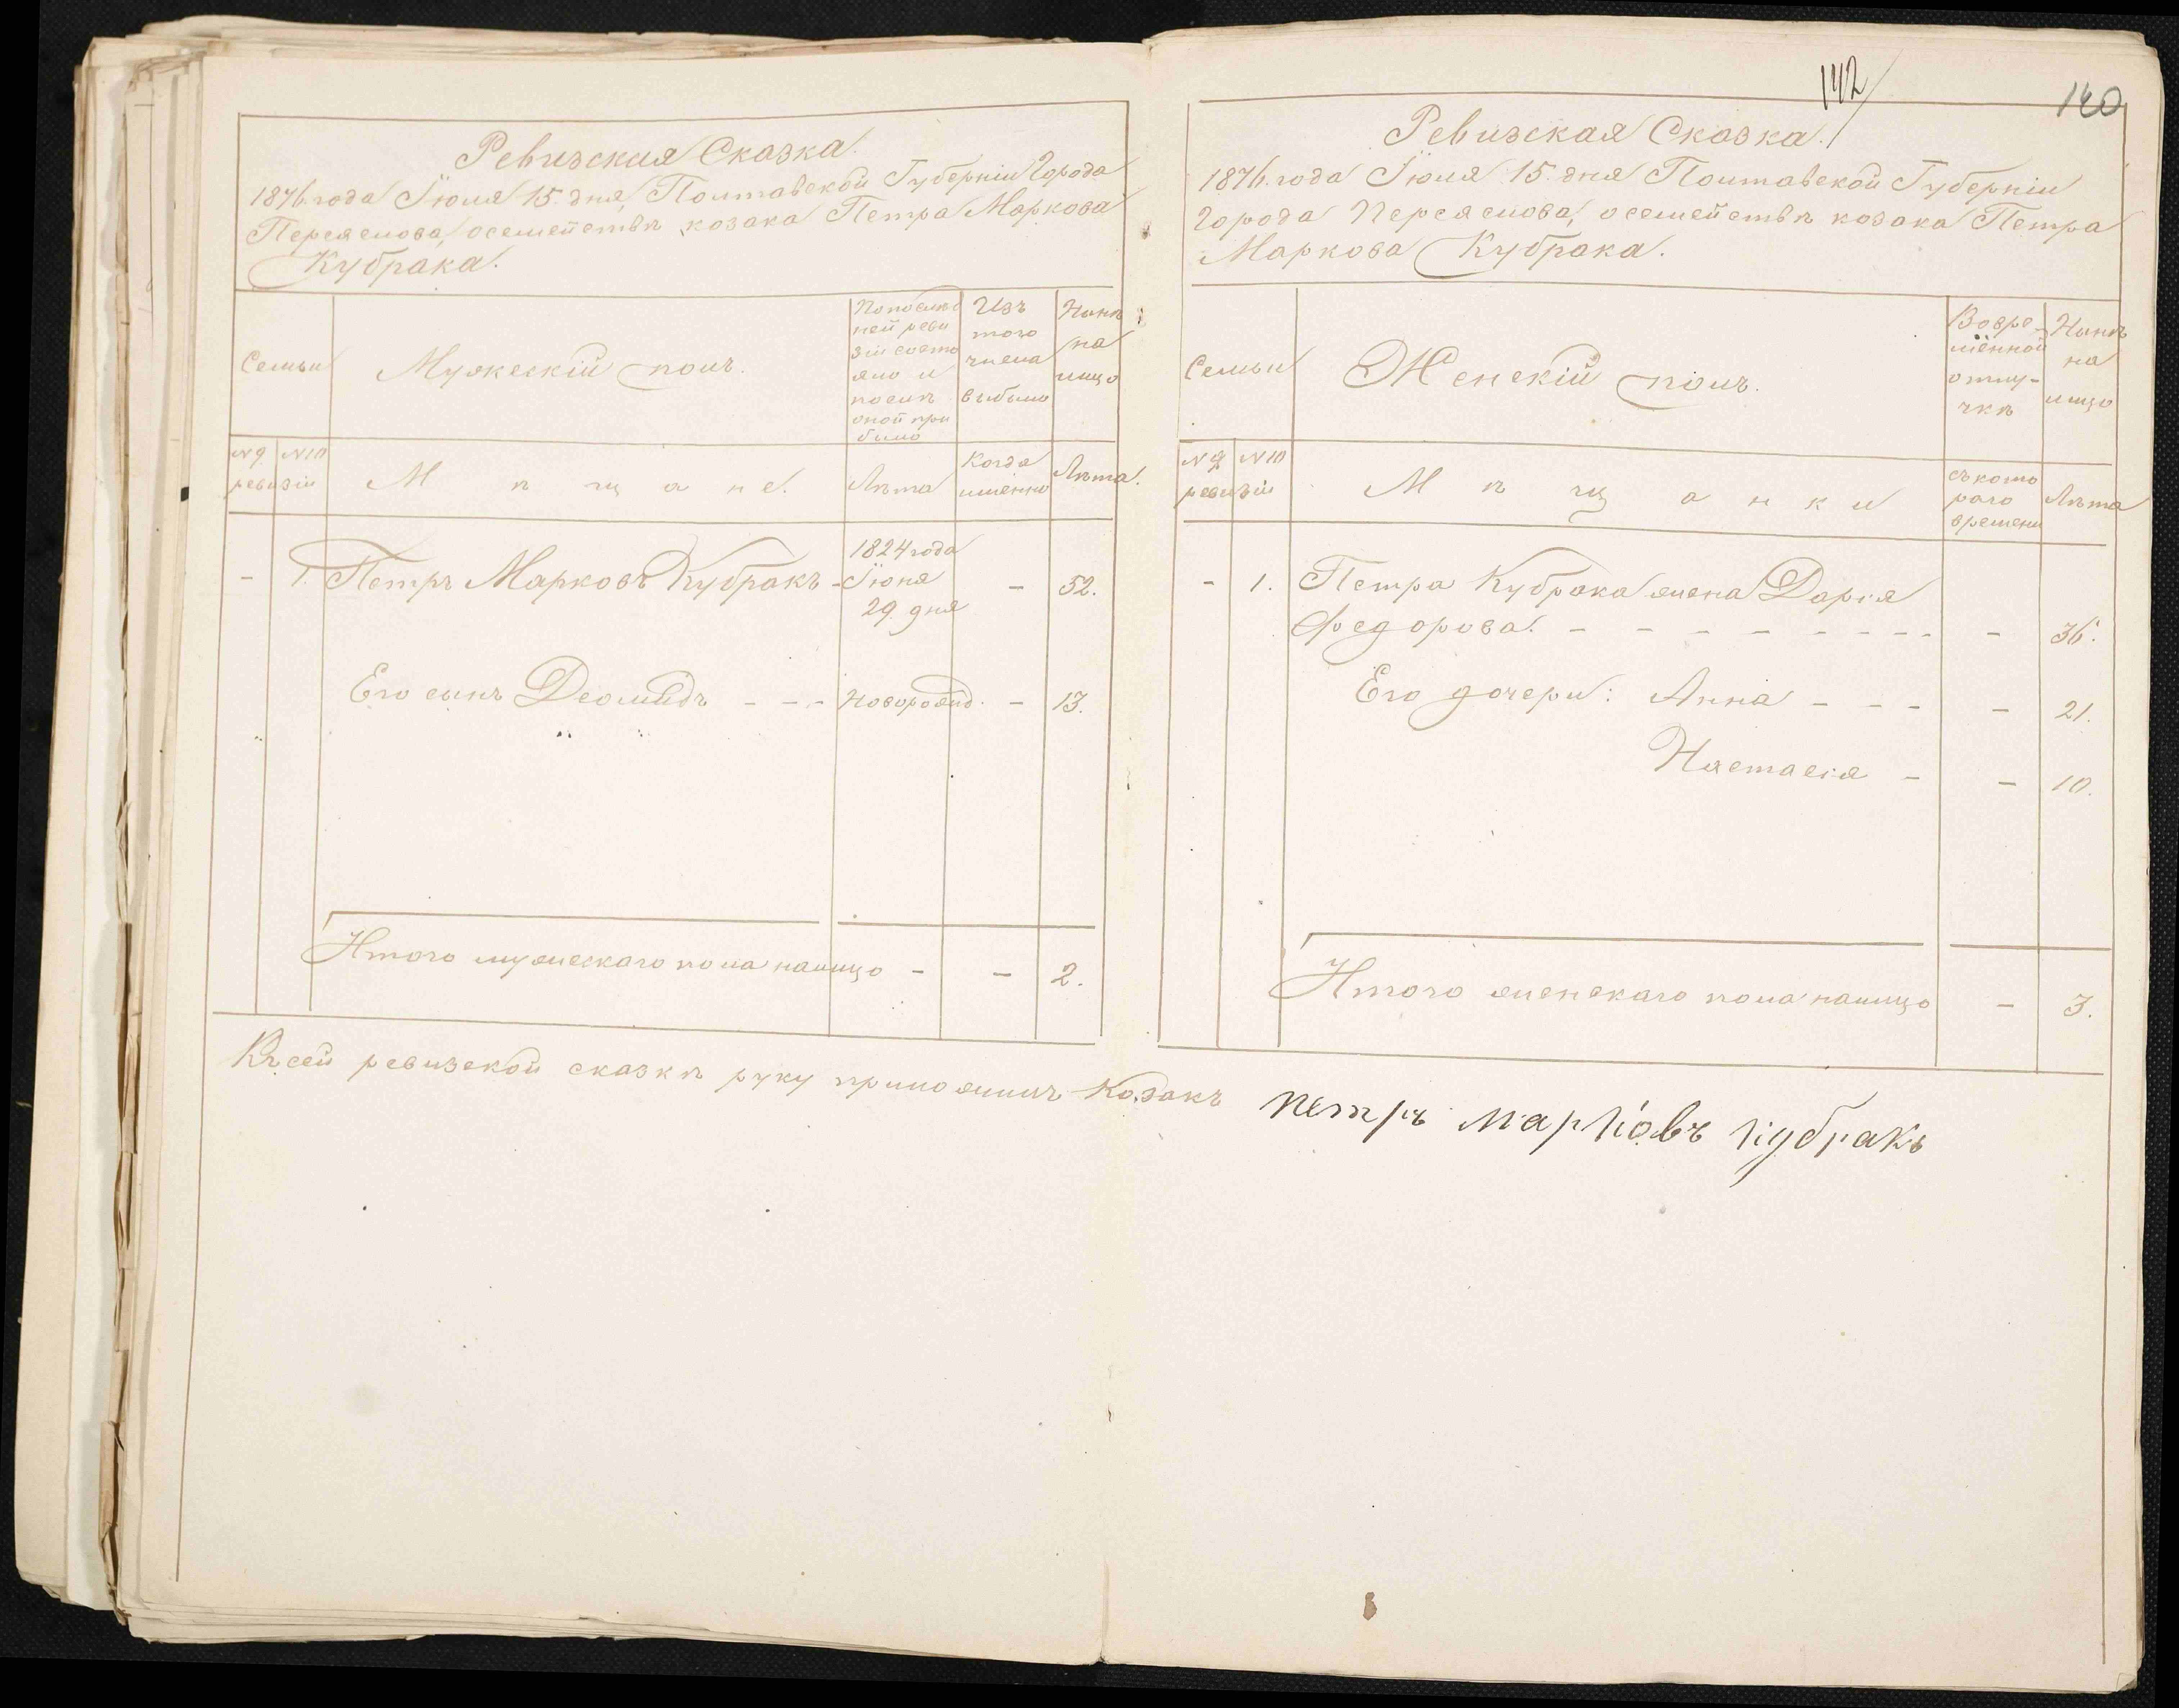 Ревизская Сказка.
1876 года Іюля 15 дня, Полтавской Губерніи Города
Переяслова, о семействѣ козака Петра Маркова
Кубрака.
Семьи
Мужескій полъ.
По послѣд
ней реви
зіи состо
яло и
послѣ
оной при
было
Изъ
того
числа
выбыло
Нынѣ
на
лицо
№9 №10
ревизіи
Мѣщане.
Лѣта
Когда
именно
Лѣта.
1824 года
- 1. Петръ Марковъ Кубракъ - Іюня - 52.
29 дня
Его сынъ Деомидъ - - - Новорожд. - 13.
Итого мужескаго пола налицо - - 2.
Къ сей ревизской сказкѣ руку приложилъ Козакъ Петръ Марковъ Кубракъ
142
140
Ревизская Сказка.
1876 года Іюля 15 дня Полтавской Губерніи
Города Переяслова, о семействѣ козака Петра
Маркова Кубрака.
Семьи
Женскій полъ.
Во вре-
мѣнной
отлу-
чкѣ
Нынѣ
на
лицо
№9 №10
ревизіи
Мѣщанки
съ кото
раго
времени
Лѣта
- 1. Петра Кубрака жена Дарія
Федорова. - - - - - - - - - 36.
Его дочери: Анна - - - - 21.
Настасія - - 10.
Итого женскаго пола налицо - 3.